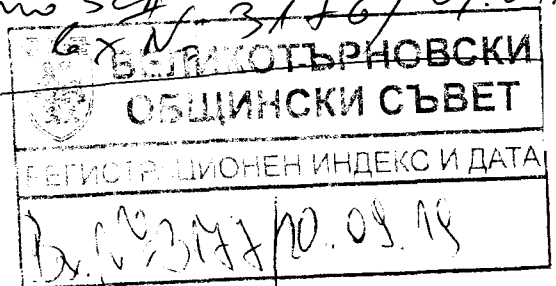 вх № 3176/
ВЕЛИКОТЪРНОВСКИ
ОБЩИНСКИ СЪВЕТ
РЕГИСТРАЦИОНЕН ИНДЕКС И ДАТА
Вх. № 3177 10.09.19